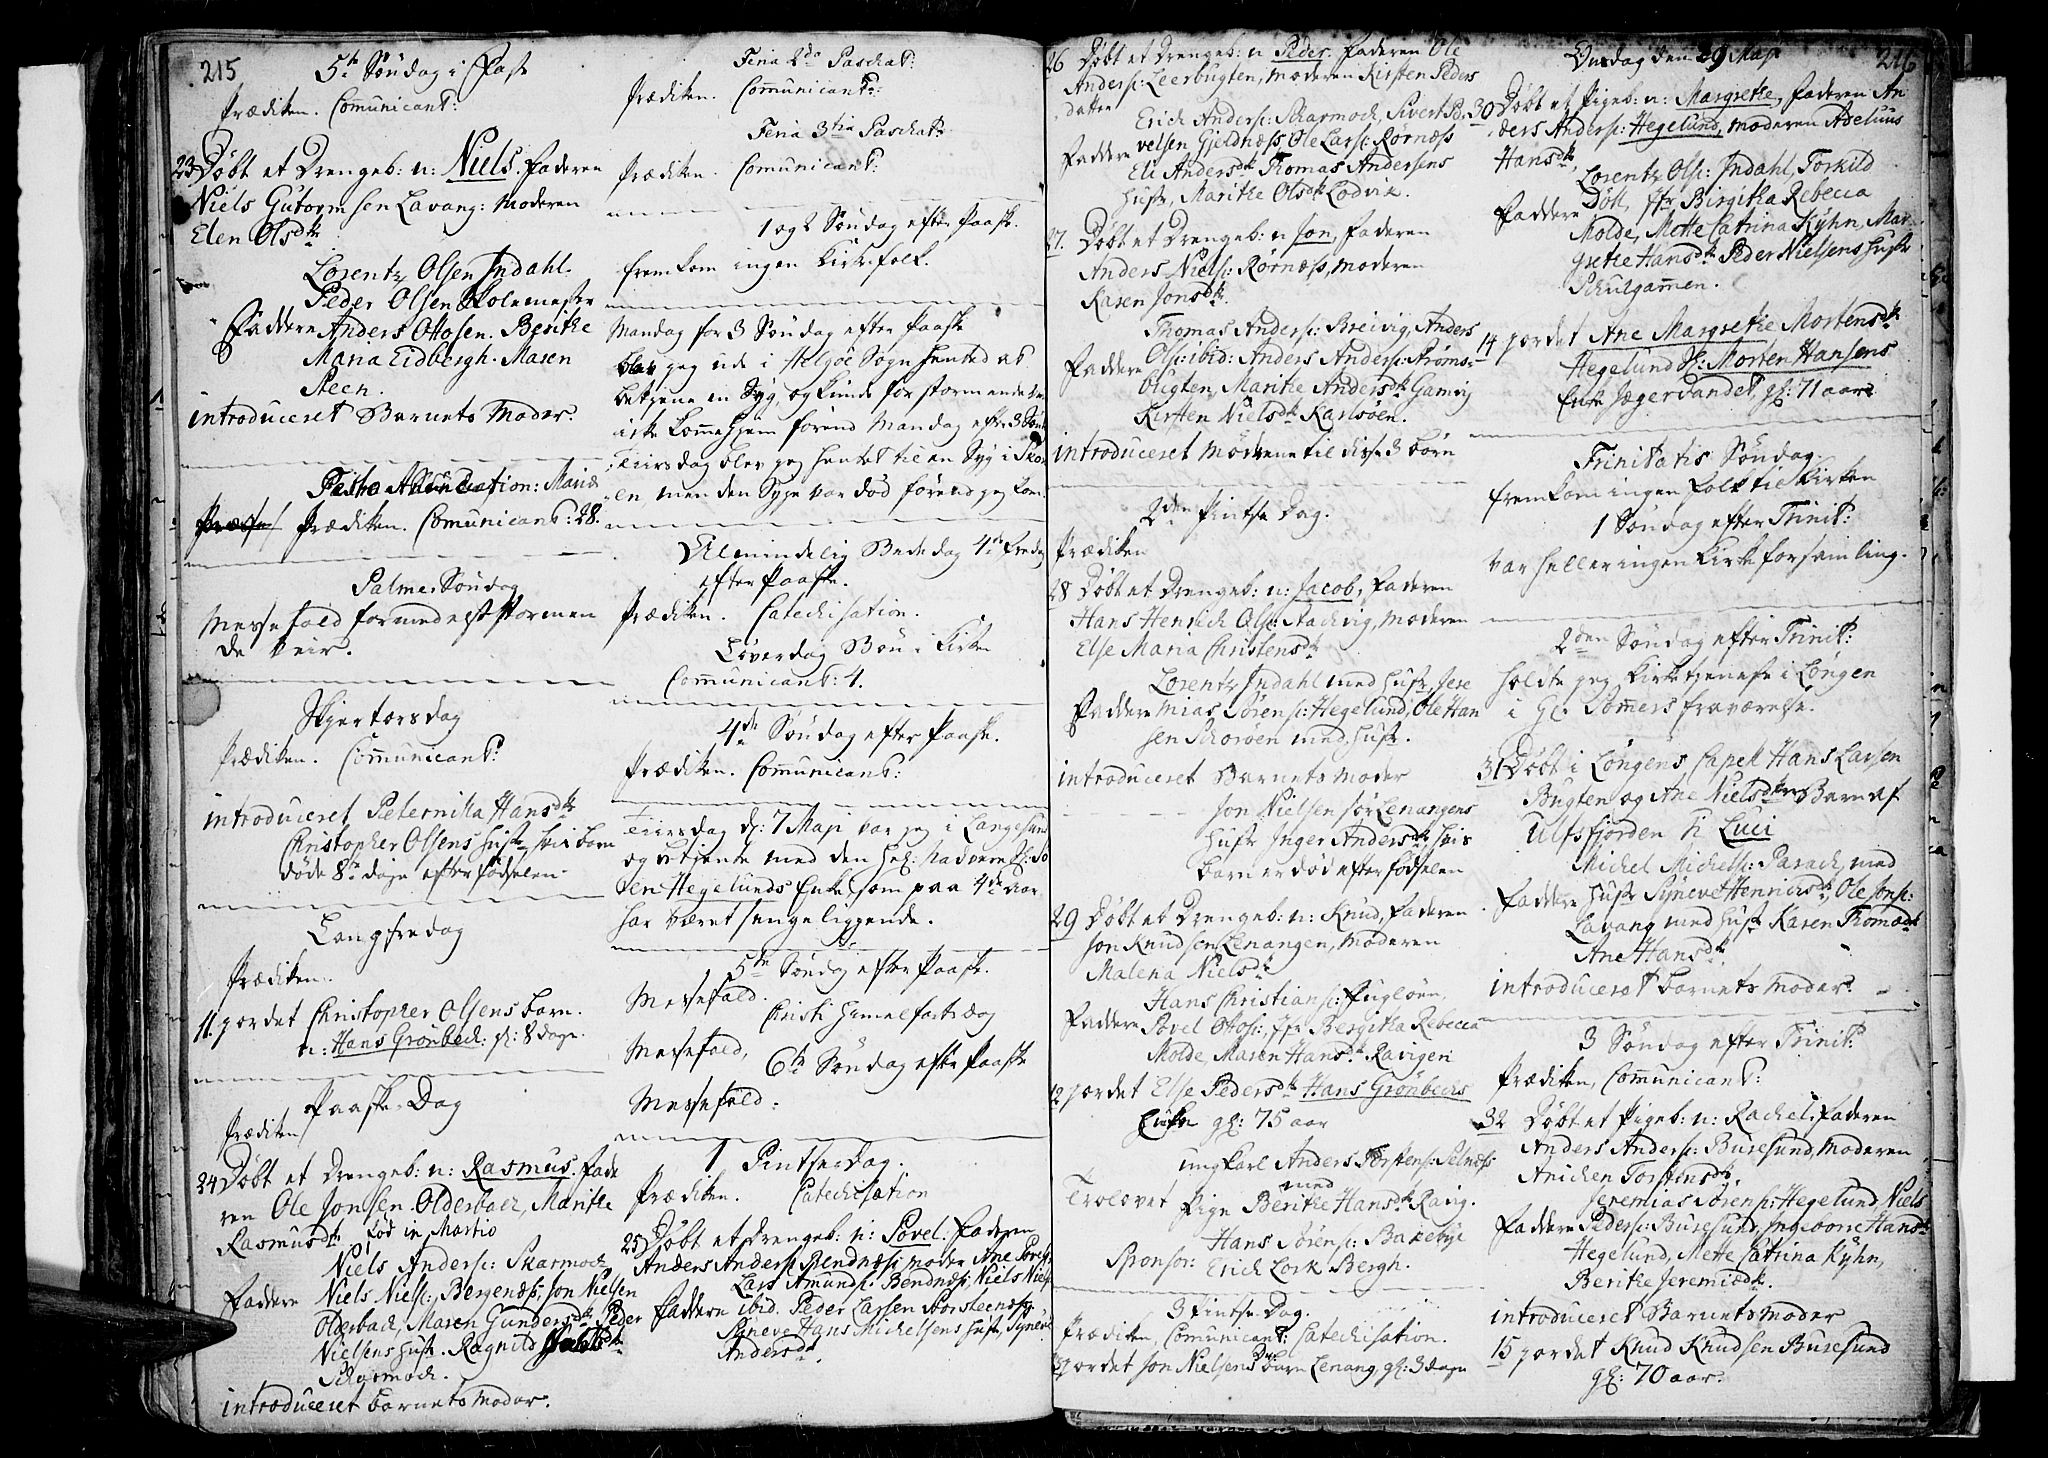 215
5te Søndag i Fast
Prædiken. Comunicant:
23 Døbt et Drengeb: n: Niels. Faderen
Niels Gutormsen Lavang: Moderen
Elen Olsdtr
Lorentz Olsen Indahl.
Peder Olsen Skolemester
Faddere Anders Ottosen. Beritke
Maria Eidbergh. Maren
Steen.
introduceret Barnets Moder.
Festo Anunciation: Mariæ
Prædiken. Comunicant: 28.
Palme Søndag
Messefald formedelst stormen
de Veir.
Skjertorsdag
Prædiken. Comunicant:
introduceret Peternilla Hansdtr
Christopher Olsens Hustr, hvis barn
døde 8te dage efter fødselen.
Langfredag
Prædiken.
11 jordet Christopher Olsens barn.
n: Hans Grønbech. gl: 8 dage.
Paaske-Dag
Prædiken
24 Døbt et Drengeb: n: Rasmus. Fade
ren Ole Jonsen Olderbak, Maritke
Rasmusdtr fød in Martio
Niels Anders: Skarmoch
Faddere Niels Niels: Bergenæs, Jon Nielsen
Olderbach, Maren Gundersdtr Peder
Nielsens Hustr. Ragnild
Scharmoch.
introduceret barnets Moder.
Feria 2da Paschat:
Prædiken. Comunicant:
Feria 3tia Paschat:
Prædiken. Comunicant:
1 og 2 Søndag efter Paaske
fremkom ingen Kirkefolk.
Mandag for 3 Søndag efter Paaske
blev jeg ude i Helgøe Sogn hentet at
betjene en Syg, og kunde for stormende
icke komme hjem førend Mandag efter 3 Sønd
Tiirsdag blev jeg hentet til en Syg i Skor
en men den Syge var død førend jeg kom.
Almindelig Bededag 4de fredag
efter Paaske.
Prædiken. Catechisation.
Løverdag Bøn i Kirken
Comunicant: 4.
4de Søndag efter Paaske.
Prædiken. Comunicant:
Tiirsdag d: 7 Maji var jeg i Langesund
og betjente med den hel: Nadvere Sl: Sø
ren Hegelunds Enke, som paa 4de aar
har været sengeliggende.
5te Søndag efter Paaske.
Messefald.
Christi Himelfartsdag
Messefald,
6te Søndag efter Paaske
Messefald.
1 Pintsedag.
Prædiken. Catechisation
25 Døbt et Drengeb: n: Povel. Faderen
Anders Anders: Bendnæs: moder Ane Povelsd
Lars Amunds: Bendnæs: Niels Niels:
Faddere ibid. Peder Larsen Storsteenes,
Synneve Hans Michelsens Hustr, Synneve
Andersdtr.
26 Døbt et Drengeb: n: Peder. Faderen Ole
Anders: Leerbugten, Moderen Kirsten Peders
datter
Erich Anders: Skarmoch, Sivert Po.
Faddere velsen Gjeldnæss, Ole Lars: Rørnæss
Eli Andersdtr Thomas Andersens
Hustr, Maritke Olsdtr Lodvik.
27. Døbt et Drengeb: n: Jon, Faderen
Anders Niels: Rørnæss, Moderen
Karen Jonsdtr.
Thomas Anders: Breivig, Anders
Faddere Ols: ibid: Anders Anders: Strøms-
bugten, Maritke Andersdtr Gamvig
Kirsten Nielsdtr Karlsøen.
introduceret Mødrene til disse 3 børn
2den Pintse Dag.
Prædiken
28 Døbt et Drengeb: n: Jacob, Faderen
Hans Henrich Ols: Stachvig, Moderen
Else Maria Christensdtr
Lorentz Indahl med Hustr, Jere
Faddere mias Sørens: Hegelund, Ole Han
sen Schorøen med Hustr.
introduceret Barnets Moder
Jon Nielsen Sør Lenangens
Hustr Inger Andersdtr, hvis
barn er død efter fødselen
29 Døbt et Drengeb: n: Knud, Faderen
Jon Knudsen Lenangen, Moderen
Malena Nielsdtr
Hans Christians: Fugløen,
Faddere Povel Ottos: Jfr Bergitka Rebecca
Molde, Maren Hansdtr Ravigen
12 jordet Else Pedersdtr Hans Grønbechs
Enke gl: 75 aar
ungkarl Anders Torstens: Selnæss
med
Trolovet Pige Beritke Hansdtr Ravig.
Hans Sørens: Bakebye
Sponsor: Erich Lork Bergh.
3 Pintse Dag.
Prædiken, Comunicant: Catechisation.
13 jordet Jon Nielsens barn Lenang, gl: 3 dage
Onsdag den 29 Maji 216
30 Døbt et Pigeb: n: Margretke, Faderen An
ders Anders: Hegelund, Moderen Adeluus
Hansdtr
Lorentz Ols: Indahl, Torkild
Faddere Døll, Jfr Birgitka Rebecca
Molde, Mette Catrina Kyhn, Mar
gretke Hansdtr Peder Nielsens Hustr
Schulgamen.
14 jordet Ane Margretke Mortensdtr
Hegelund Sl: Morten Hansens
Enke Jægervandet, gl: 71 aar.
Trinitatis Søndag.
fremkom ingen folk til Kirken
1 Søndag efter Trinit:
var heller ingen Kirkeforsamling.
2den Søndag efter Trinit:
holdte jeg Kirketjeneste i Løngen
i Hr. Sommers fraværelse.
31 Døbt i Løngens Capell Hans Larsen
Bugten og Ane Nielsdtrs Barn af
Ulfsfjorden n: Luci
Michel Michels: Parach, med
Faddere Hustr Syneve Henricsdtr, Ole Jons:
Lavang med Hustr Karen Thomædtr
Ane Hansdtr
introduceret barnets Moder.
3 Søndag efter Trinit:
Prædiken, Comunicant:
32 Døbt et Pigeb: n: Rachel, Faderen
Anders Anders: Buresund, Moderen
Anichen Torstensdtr.
Jeremias Sørens: Hegelund, Niels
Faddere Peders: Buresund, Ingeborre Hansdtr
Hegelund, Mette Catrina Kyhn,
Beritke Jeremiædtr.
introduceret Barnets Moder
15 jordet Knud Knudsen Buresund
gl: 70 aar.